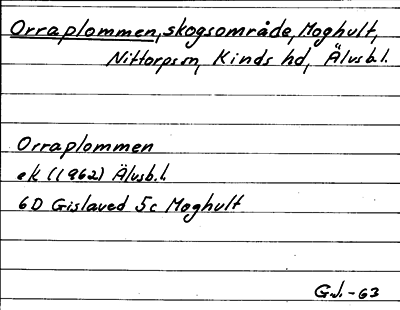 Orraplommen, skogsområde, Moghult,
Nittorps sn, Kinds hd, Älvsb.l.
Orraplommen
ek (1962) Älvsb.l.
6D Gislaved 5c Moghult
G.J. - 63